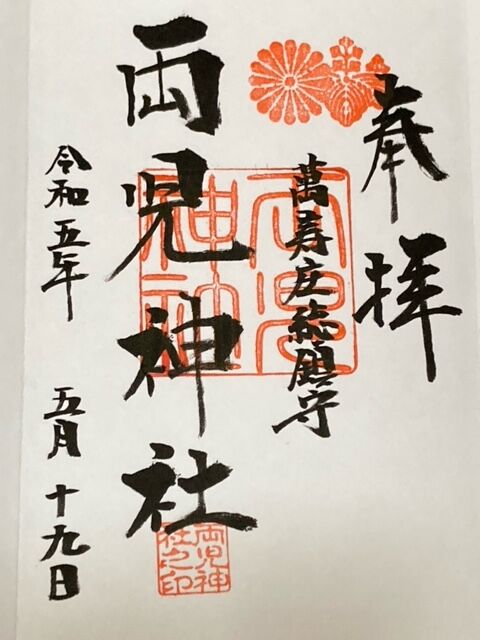 奉拝
萬寿庄総鎮守
両児神社
令和五年 五月 十九日
両児神
社之印